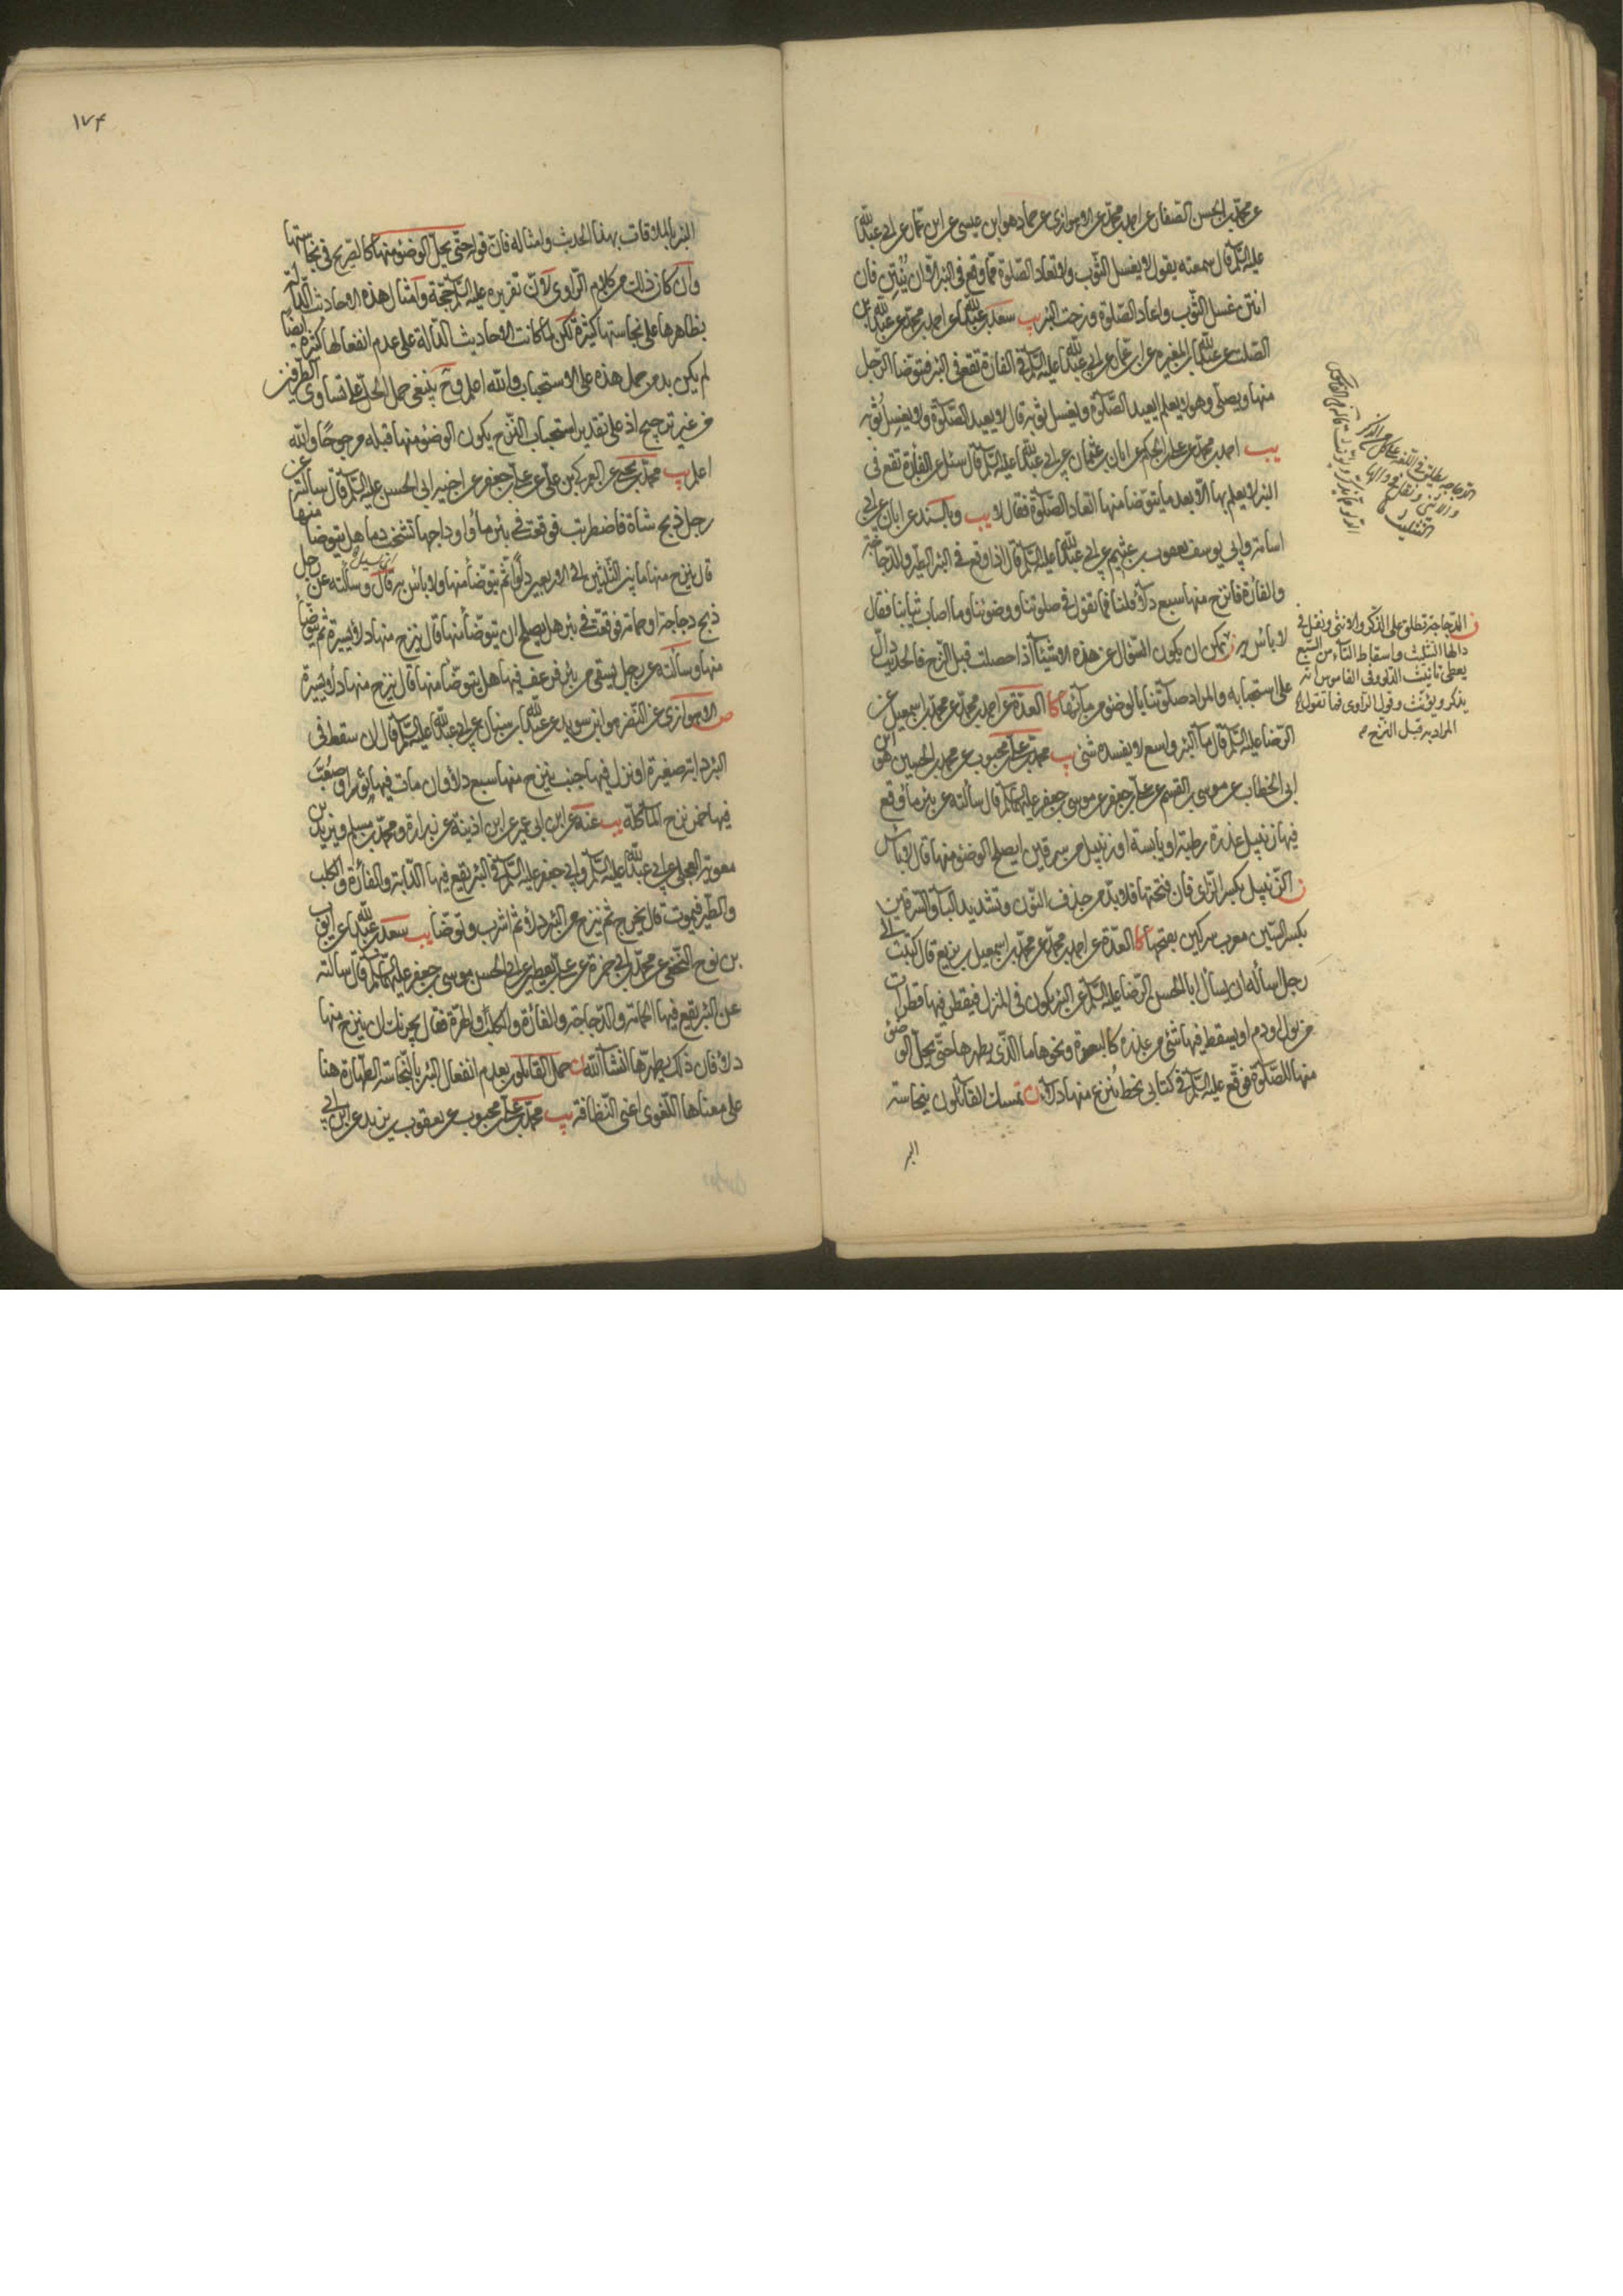 عن محمد بن الحسن الصفار عن احمد بن محمد عن الاهوازي عن حماد هو ابن عيسى عن ابن عمار عن ابي عبد الله
عليه السلم قال سمعته يقول لا يغسل الثوب ولا تعاد الصلوة مما وقع في البئر الا ان يُنتِن فان
انتن غسل الثوب واعاد الصلوة ونزحت البئر يب سعد بن عبد الله عن احمد بن محمد عن عبد الله بن
الصلت عن عبد الله بن المغيرة عن ابن عمار عن ابي عبد الله عليه السلم في الفارة تقع في البئر فيتوضا الرجل
منها ويصلي وهو لا يعلم ايعيد الصلوة ويغسل ثوبه قال لا يعيد الصلوة ولا يغسل ثوبه
يب احمد بن محمد عن علي بن الحكم عن ابان بن عثمان عن ابي عبد الله عليه السلم قال سئل عن الفارة تقع في
البئر لا يعلم بها الا بعد ما يتوضا منها اتعاد الصلوة فقال لا يب وبالسند عن ابان عن ابي
اسامة وابي يوسف يعقوب بن عثيم عن ابي عبد الله عليه السلم قال اذا وقع في البئر الطير والدجاجة
والفارة فانزح منها سبع دلاء قلنا فما تقول في صلوتنا ووضوئنا وما اصاب ثيابنا فقال
لا باس به ن يمكن ان يكون السؤال عن هذه الاشياء اذا حصلت قبل النزح فالحديث دال
على استحبابه والمراد صلوتنا بالوضوء من مائها كا العدة عن احمد بن محمد عن محمد بن اسمعيل عن
الرضا عليه السلم قال ماء البئر واسع لا يفسده شئ يب محمد بن علي بن محبوب عن محمد بن الحسين هو ابن
ابي الخطاب عن موسى بن القسم عن علي بن جعفر عن موسى بن جعفر عليهما السلم قال سألته عن بئر ماء وقع
فيها زنبيل عذرة رطبة او يابسة او زنبيل من سرقين ايصلح الوضوء منها قال لا بأس
ن الزنبيل بكسر الزاي فان فتحتها فلا بد من حذف النون وتشديد الباء والسرقين
بكسر السين معرب سركين بفتحها كا العدة عن احمد بن محمد عن محمد بن اسمعيل بن بزيع قال كتبت الى
رجل سأله ان يسأل ابا الحسن الرضا عليه السلم عن البئر يكون في المنزل فيقطر فيها قطرات
من بول او دم او يسقط فيها شئ من عذرة كالبعرة ونحوها ما الذي يطهرها حتى يحل الوضوء
منها للصلوة فوقع عليه السلم في كتابي بخطه تنزح منها دلاء ن تمسك القائلون بنجاسة
البر
الدجاجة تطلق على الذكر والانثى ونقل في
دالها التثليث واسقاط التاء من السبع
يعطي تانيث الدلو وفي القاموس انه
يذكر ويؤنث وقول الراوي فما تقول
المراد به قبل النزح
١٧٤
البئر بالملاقات بهذا الحديث وامثاله فان قوله حتى يحل الوضوء منها كالصريح في نجاستها
وان كان ذلك من كلام الراوي لان تقريره عليه السلم حجة وامثال هذه الاحاديث الدالة
بظاهرها على نجاستها كثيرة لكن لما كانت الاحاديث الدالة على عدم انفعالها كثيرة ايضا
لم يكن بد من حمل هذه على الاستحباب والله اعلم وح ينبغي حمل الحل على تساوي الطرفين
من غير ترجيح اذ على تقدير استحباب النزح يكون الوضوء منها قبله مرجوحا والله
اعلم يب محمد بن يحيى عن العمركي بن علي عن علي بن جعفر عن اخيه ابي الحسن عليه السلم قال سألته عن
رجل ذبح شاة فاضطربت فوقعت في بئر ماء واوداجها تشخب دما هل يتوضا منها
قال ينزح منها ما بين الثلثين الى الاربعين دلوا ثم يتوضأ منها ولا باس به قال وسألته عن رجل
ذبح دجاجة او حمامة فوقعت في بئر هل يصلح ان يتوضأ منها قال ينزح منها دلاء يسيرة ثم يتوضأ
منها وسألته عن رجل يستقي من بئر فرعف فيها هل يتوضأ منها قال ينزح منها دلاء يسيرة
ص الاهوازي عن النضر هو ابن سويد عن عبد الله بن سنان عن ابي عبد الله عليه السلم قال ان سقط في
البئر دابة صغيرة او نزل فيها جنب ينزح منها سبع دلاء وان مات فيها ثور او صُبّ
فيها خمر نزح الماء كله يب عنه عن ابن ابي عمير عن ابن اذينة عن زرارة ومحمد بن مسلم وبريد بن
معوية العجلي عن ابي عبد الله عليه السلم وابي جعفر عليه السلم في البئر يقع فيها الدابة والفأرة والكلب
والطير فيموت قال يخرج ثم ينزح من البئر دلاء ثم اشرب وتوضا يب سعد بن عبد الله عن ايوب
بن نوح النخعي عن محمد بن ابي حمزة عن علي بن يقطين عن ابي الحسن موسى بن جعفر عليهما السلم قال سألته
عن البئر يقع فيها الحمامة والدجاجة والفأرة والكلب والهرة فقال يجزيك ان ينزح منها
دلاء فان ذلك يطهرها انشاء الله ن حمل القائلون بعدم انفعال البئر بالنجاسة الطهارة هنا
على معناها اللغوي اعني النظافة يب محمد بن علي بن محبوب عن يعقوب بن يزيد عن ابن ابي